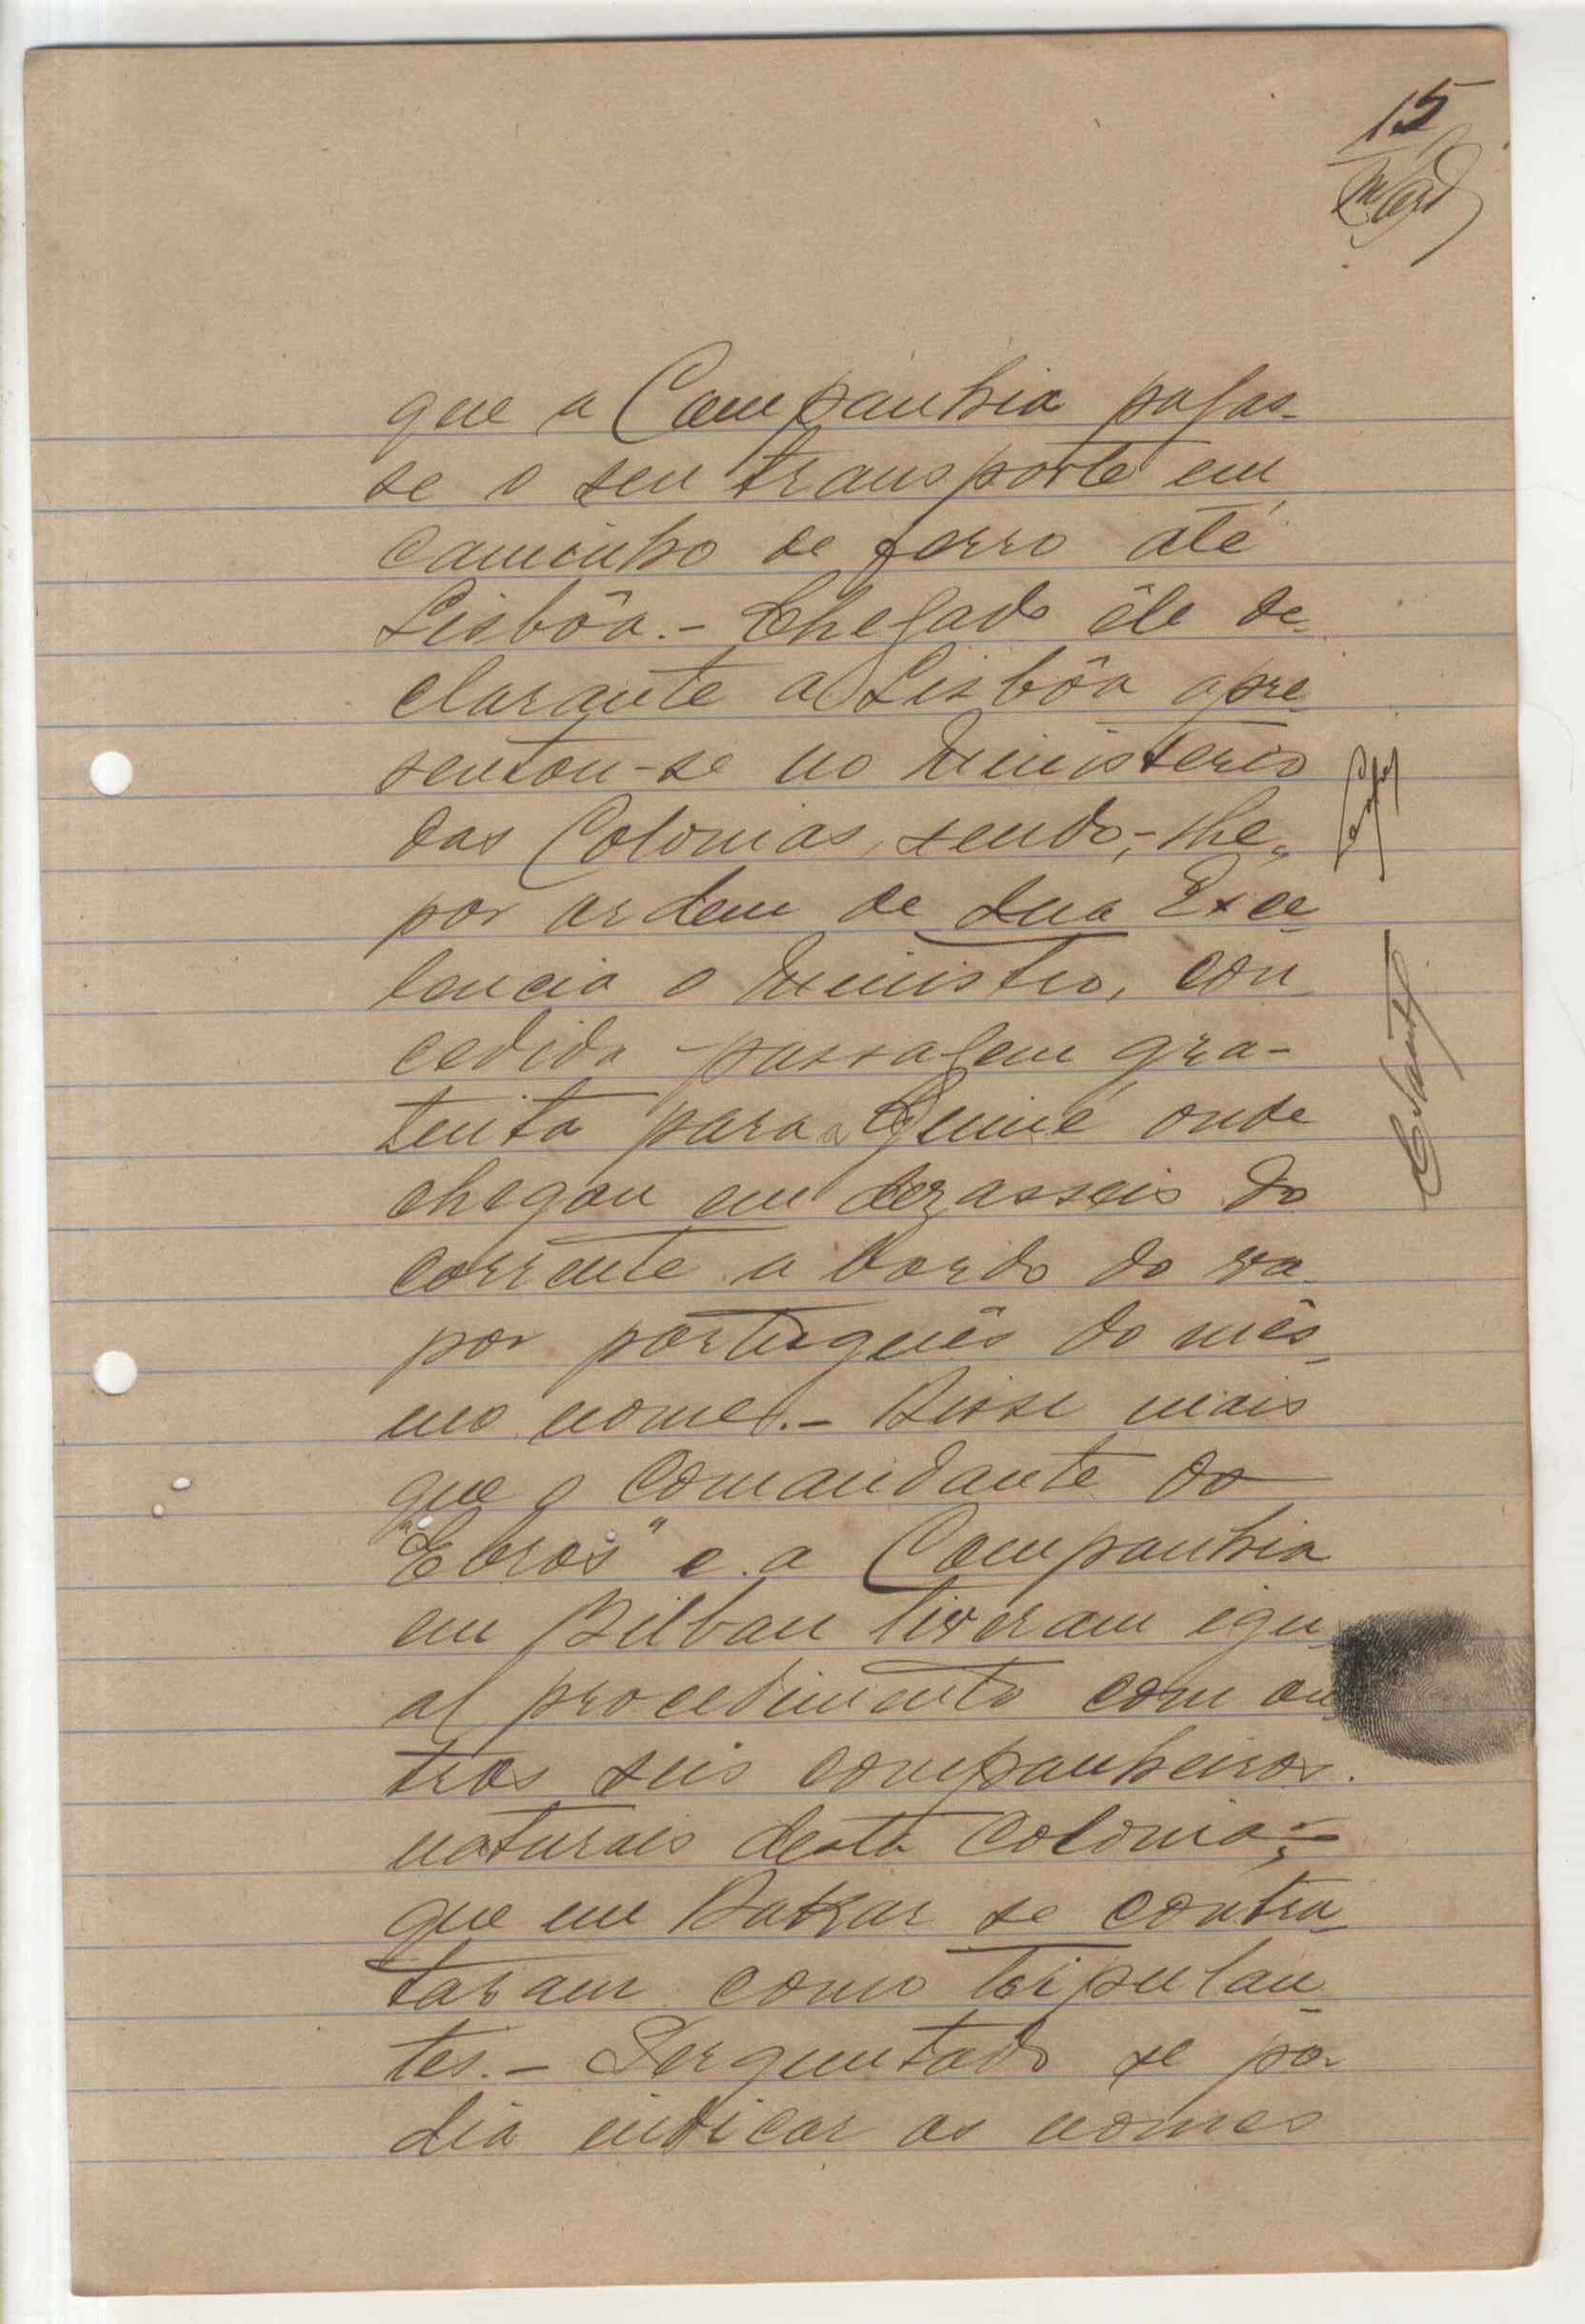 15
que a Companhia pagas-
se o seu transporte em
caminho de ferro até
Lisbôa.- Chegado êle de-
clarante a Lisbôa apre-
sentou-se no Ministerio
das Colonias, sendo-lhe,
por ordem de Sua Exce-
lencia o Ministro, con-
cedida passagem gra-
tuita para a Guiné onde
chegou em dezasseis do
corrente a bordo do va-
por português do mês-
mo nome.- Disse mais
que o comandante do
"Ebros" e a Companhia
em Bilbau tiveram egu-
al procedimento com ou-
tros seis companheiros
naturais desta colonia
que em Dakar se contra-
taram como tripulan-
tes.- Perguntado se po-
dia indicar os nomes